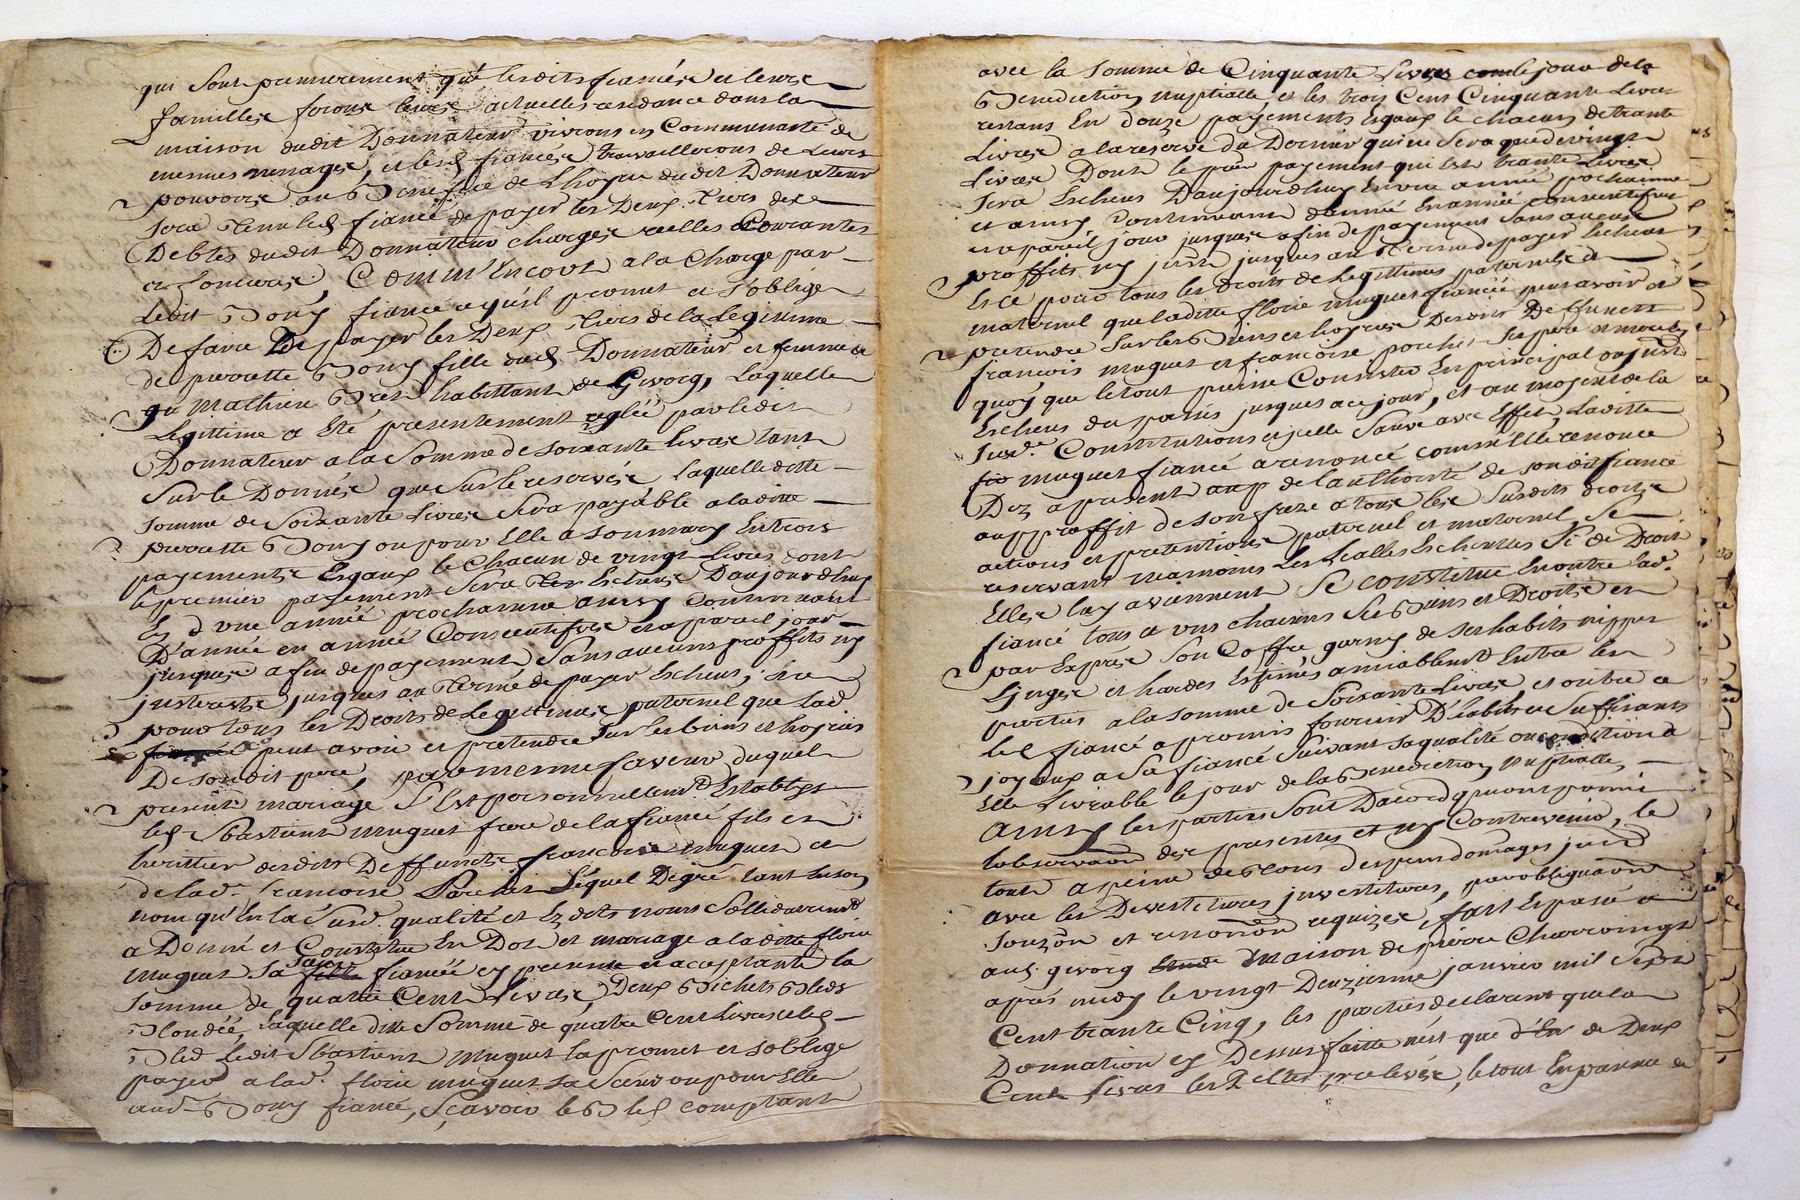 qui sont premierement que lesdits fiancés et leurs
familles feront leurs actuelles residance dans la
maison dudit Donnateur vivront en Communauté de
mesmes mesnages, et lesd fiancés travailleront de Leurs
pouvoirs au Benefice de Lhoyrie dudit Donnateur
sera tenu led fiancé de payer les Deux tiers des
Debtes dudit Donnateur charges reelles Courantes
et foncieres, Comm'Encore a la Charge par
Ledit Bony fiancé a qu'il promet et s'oblige
De faire De payer les Deux tiers de la Legitime
de pierrette Bony fille dud Donnateur et femme
de Mathieu habittant de Givorg, Laquelle
Legittime a Eté presentement reglée par ledit
Donnateur a la somme de soixante livres tant
sur le Donnés que sur le reservés laquelle ditte
somme de soixante Livres sera payable a laditte
pierrette Bony ou pour Elle a son mary En trois
payements Esgaux le Chacun de vingt Livres dont
le premier payement sera Escheus D'aujourdhuy
En d'une année prochaine ainsy Continuant
D'année en année Consecutifve et a pareil jour
jusques a fin de payement sans aucuns proffits ny
jnterests jusques au terme de payer Escheus,
pour tous les Droits de Legittimes paternel que lad
peut avoir et pretendre sur les biens et hoyries
De son dit pere, par mesme faveur duquel
present mariage s'Est personnellemt Estably
led Sbastient muguet frere de la fiancée fils et
herittier desdits Deffuncts francois muguet et
de lad. francoise Porchet Lequel De gré tant En son
nom qu'En la susd. qualité et Ez dits noms sollidairemt
a Donné et Constitue En Dot et mariage a la ditte florie
muguet sa sœur fiancée cy presente et acceptante la
somme de quatre Cent Livres Deux Bichets Bleds
Blondée, laquelle ditte somme de quatre Cent Livres et led
Bled Ledit Sbastient muguet la promet et s'oblige
payer a lad. florie muguet sa sœur ou pour Elle
aud. Bony fiancé, sçavoir le Bled comptant
avec la somme de Cinquante Livres le jour de la
Benediction nuptialle, et les trois Cent Cinquante Livres
restans En douze payements Egaux le chacun de trante
Livres a la reserve du Dernier qui ne sera que de vingt
Livres Dont le pier payement qui Est trante Livres
sera Escheus D'aujourdhuy En une année prochaine
et ainsy Continuant d'année En année Consecutifve
et a pareil jour jusques a fin de payement sans aucuns
proffits ny jusques au terme de payer Escheus
Et ce pour tous les Droits de Legittimes paternels et
maternel que laditte florie muguet fiancée peut avoir et
pretendre sur les Biens et hoyries Desdits Deffuncts
francois muguet et francoise porchet ses pere et mere
quoy que le tout puisse Consister En principal ou
Escheus du passés jusques a ce jour, et au moyent de la
susd. Constitutions icelle sauve avec Effet, Laditte
muguet fiancée a renoncé comm'Elle renonce
Dez a present aup de L'authorité de son dit fiancé
au proffit de son frere a tous les susdits droits
actions et pretentions paternel et maternel se
reservant neamoins Les Escheuttes si de Droit
Elles luy avennent se constitue En outre lad.
fiancé tous et uns chacuns ses Biens et Droits et
par Exprés son Coffre garny de ses habits nippes
Linges et hardes Estimés amiablemt Entre les
parties a la somme de soixante Livres et outre ce
led fiancé a promis fournir D'habits Suffisants
joyaux a sa fiancé suivant sa qualité ou condition a
Elle Livrable le jour de la Benediction nuptialle,
Ainsy les parties sont D'acord
lobservaon des presentes et ny Contrevenir, le
tout a peine de tous despens domages
avec les Devestitures jnvestitures, par obligaaon
soumon et renonon requizes, fait Et passé a
aud. givorg Maison de pierre Charvoingt
apres midy le vingt Deuzieme janvier mil sept
Cent trante Cinq, les parties declarent que la
Donnation cy Dessus faitte n'est que d'En de Deux
Cent livres les prelevés, le tout En presence de